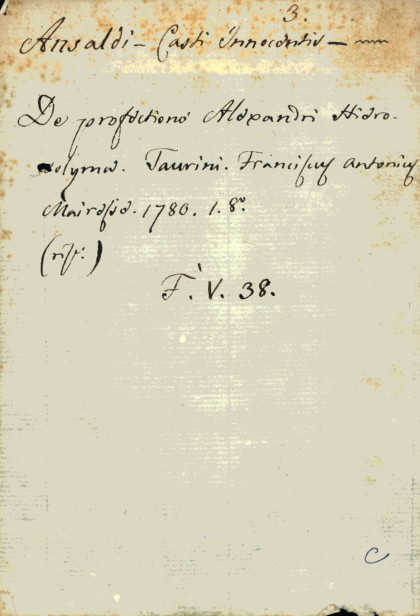 3.
Ansaldi - Casti Innocentis -
De profectione Alexandri Hiero-
solyma. Taurini. Franciscus Antonius
Mairesse. 1780. 1. 8º.
(ris:)
F. V. 38.
C